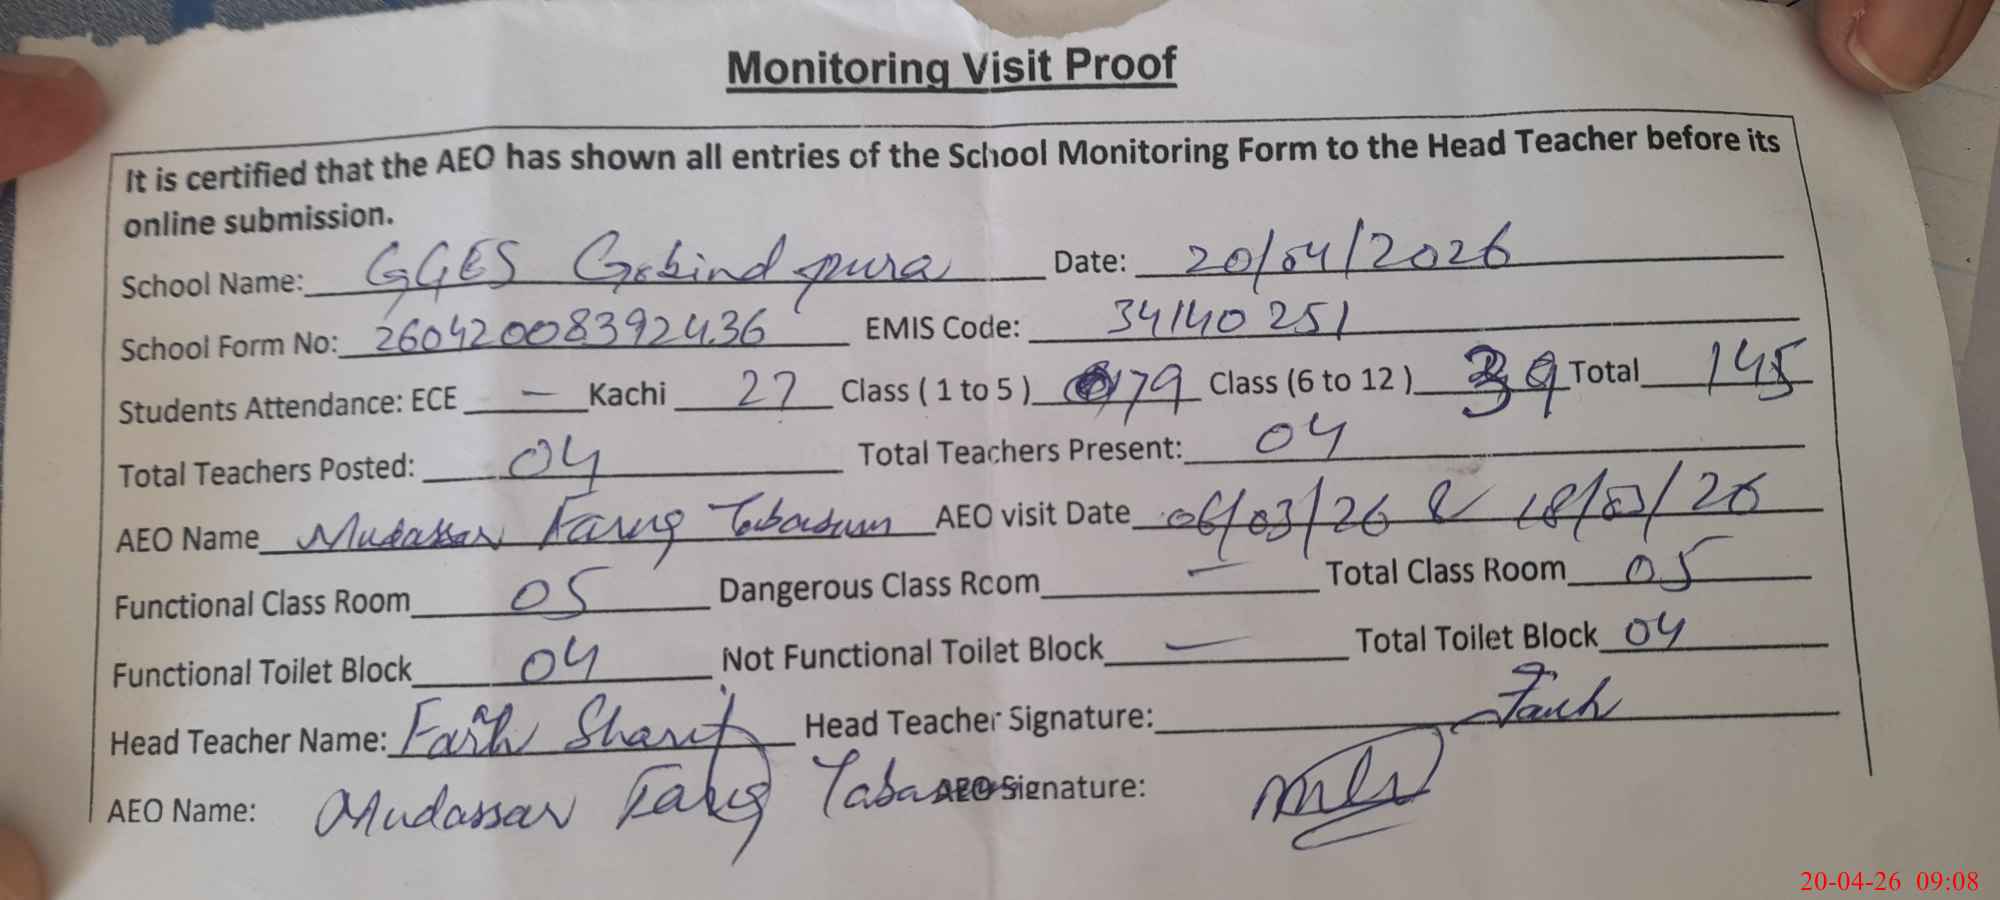 Monitoring Visit Proof
It is certified that the AEO has shown all entries of the School Monitoring Form to the Head Teacher before its
online submission.
School Name: GGES Gobind pura Date: 20/04/2026
School Form No: 260420083924.36 EMIS Code: 34140251
Students Attendance: ECE — Kachi 27 Class ( 1 to 5 ) 79 Class (6 to 12 ) 39 Total 145
Total Teachers Posted: 04 Total Teachers Present: 04
AEO Name Mudassar Faruq Tabassum AEO visit Date 06/03/26 & 18/03/26
Functional Class Room 05 Dangerous Class Room — Total Class Room 05
Functional Toilet Block 04 Not Functional Toilet Block — Total Toilet Block 04
Head Teacher Name: Sharif Head Teacher Signature:
AEO Name: Mudassar Faruq AEO Signature:
20-04-26 09:08